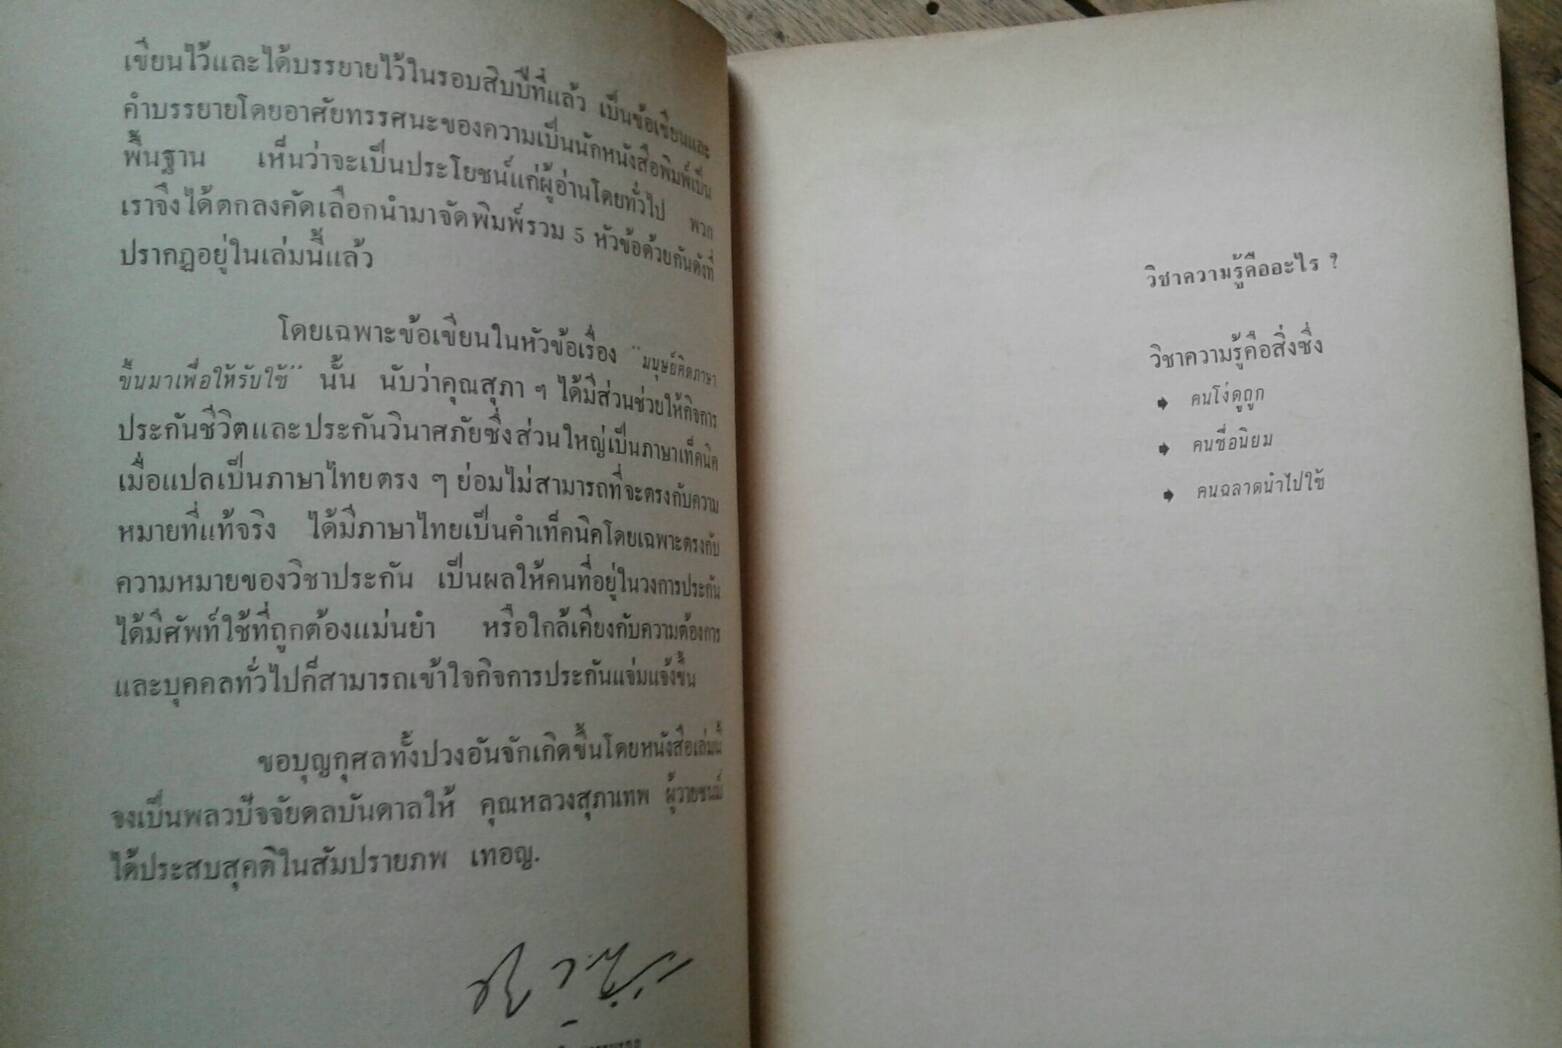 เขียนไว้และได้บรรยายไว้ในรอบสิบปีที่แล้ว เป็นข้อเขียนและ
คำบรรยายโดยอาศัยทรรศนะของความเป็นนักหนังสือพิมพ์เป็น
พื้นฐาน เห็นว่าจะเป็นประโยชน์แก่ผู้อ่านโดยทั่วไป พวก
เราจึงได้ตกลงคัดเลือกนำมาจัดพิมพ์รวม 5 หัวข้อด้วยกันดังที่
ปรากฏอยู่ในเล่มนี้แล้ว
โดยเฉพาะข้อเขียนในหัวข้อเรื่อง "มนุษย์คิดภาษา
ขึ้นมาเพื่อให้รับใช้" นั้น นับว่าคุณสุภา ฯ ได้มีส่วนช่วยให้กิจการ
ประกันชีวิตและประกันวินาศภัยซึ่งส่วนใหญ่เป็นภาษาเท็คนิค
เมื่อแปลเป็นภาษาไทยตรง ๆ ย่อมไม่สามารถที่จะตรงกับความ
หมายที่แท้จริง ได้มีภาษาไทยเป็นคำเท็คนิคโดยเฉพาะตรงกับ
ความหมายของวิชาประกัน เป็นผลให้คนที่อยู่ในวงการประกัน
ได้มีศัพท์ใช้ที่ถูกต้องแม่นยำ หรือใกล้เคียงกับความต้องการ
และบุคคลทั่วไปก็สามารถเข้าใจกิจการประกันแจ่มแจ้งขึ้น
ขอบุญกุศลทั้งปวงอันจักเกิดขึ้นโดยหนังสือเล่มนี้
จงเป็นพลวปัจจัยดลบันดาลให้ คุณหลวงสุภาเทพ ผู้วายชนม์
ได้ประสบสุคติในสัมปรายภพ เทอญ.
วิชาความรู้คืออะไร ?
วิชาความรู้คือสิ่งซึ่ง
คนโง่ดูถูก
คนซื่อนิยม
คนฉลาดนำไปใช้